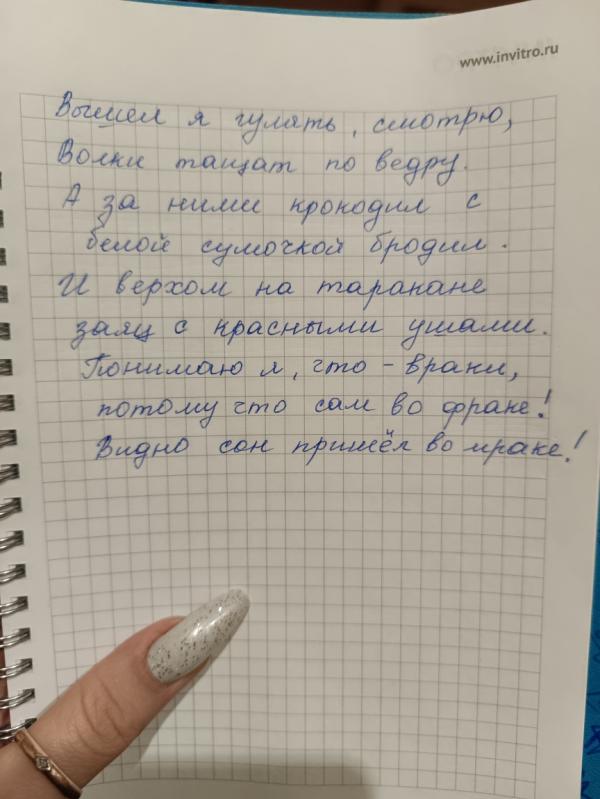 www.invitro.ru
Вышел я гулять, смотрю,
Волки тащат по ведру.
А за ними крокодил с
белой сумочкой бродил.
И верхом на таракане
заяц с красными ушами.
Понимаю я, что - враки,
потому что сам во фраке!
Видно сон пришёл во мраке!